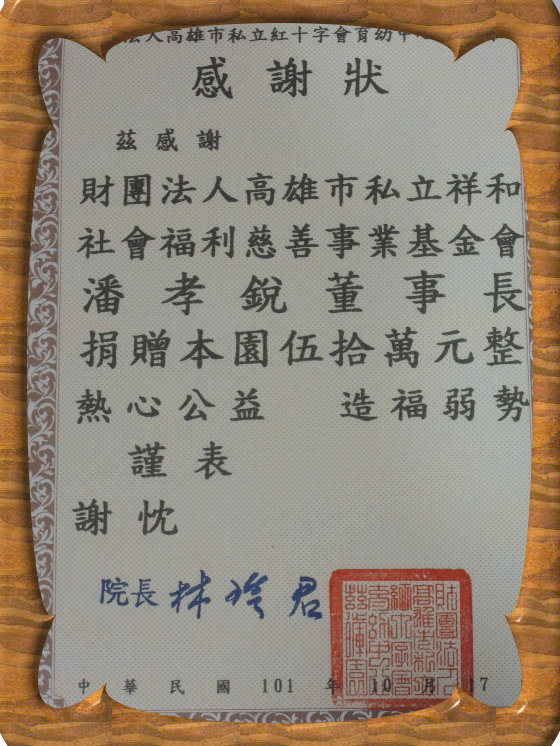 法人高雄市私立紅十字會育幼中
感謝狀
茲感謝
財團法人高雄市私立祥和
社會福利慈善事業基金會
潘孝銳董事長
捐贈本園伍拾萬元整
熱心公益 造福弱勢
謹表
謝忱
院長 林 君
中華民國 101 年 10 月 17